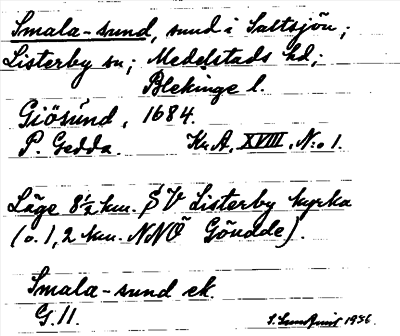 Smala-sund, sund i Saltsjön;
Listerby sn; Medelstads hd;
Blekinge l.
Giösund, 1684.
P. Gedda. Kr.A. XVIII, N:o 1.
Läge 8 1/2 km. SV Listerby kyrka
(o. 1,2 km. NNÖ Göudde).
Smala-sund ek.
G.11.
1936.